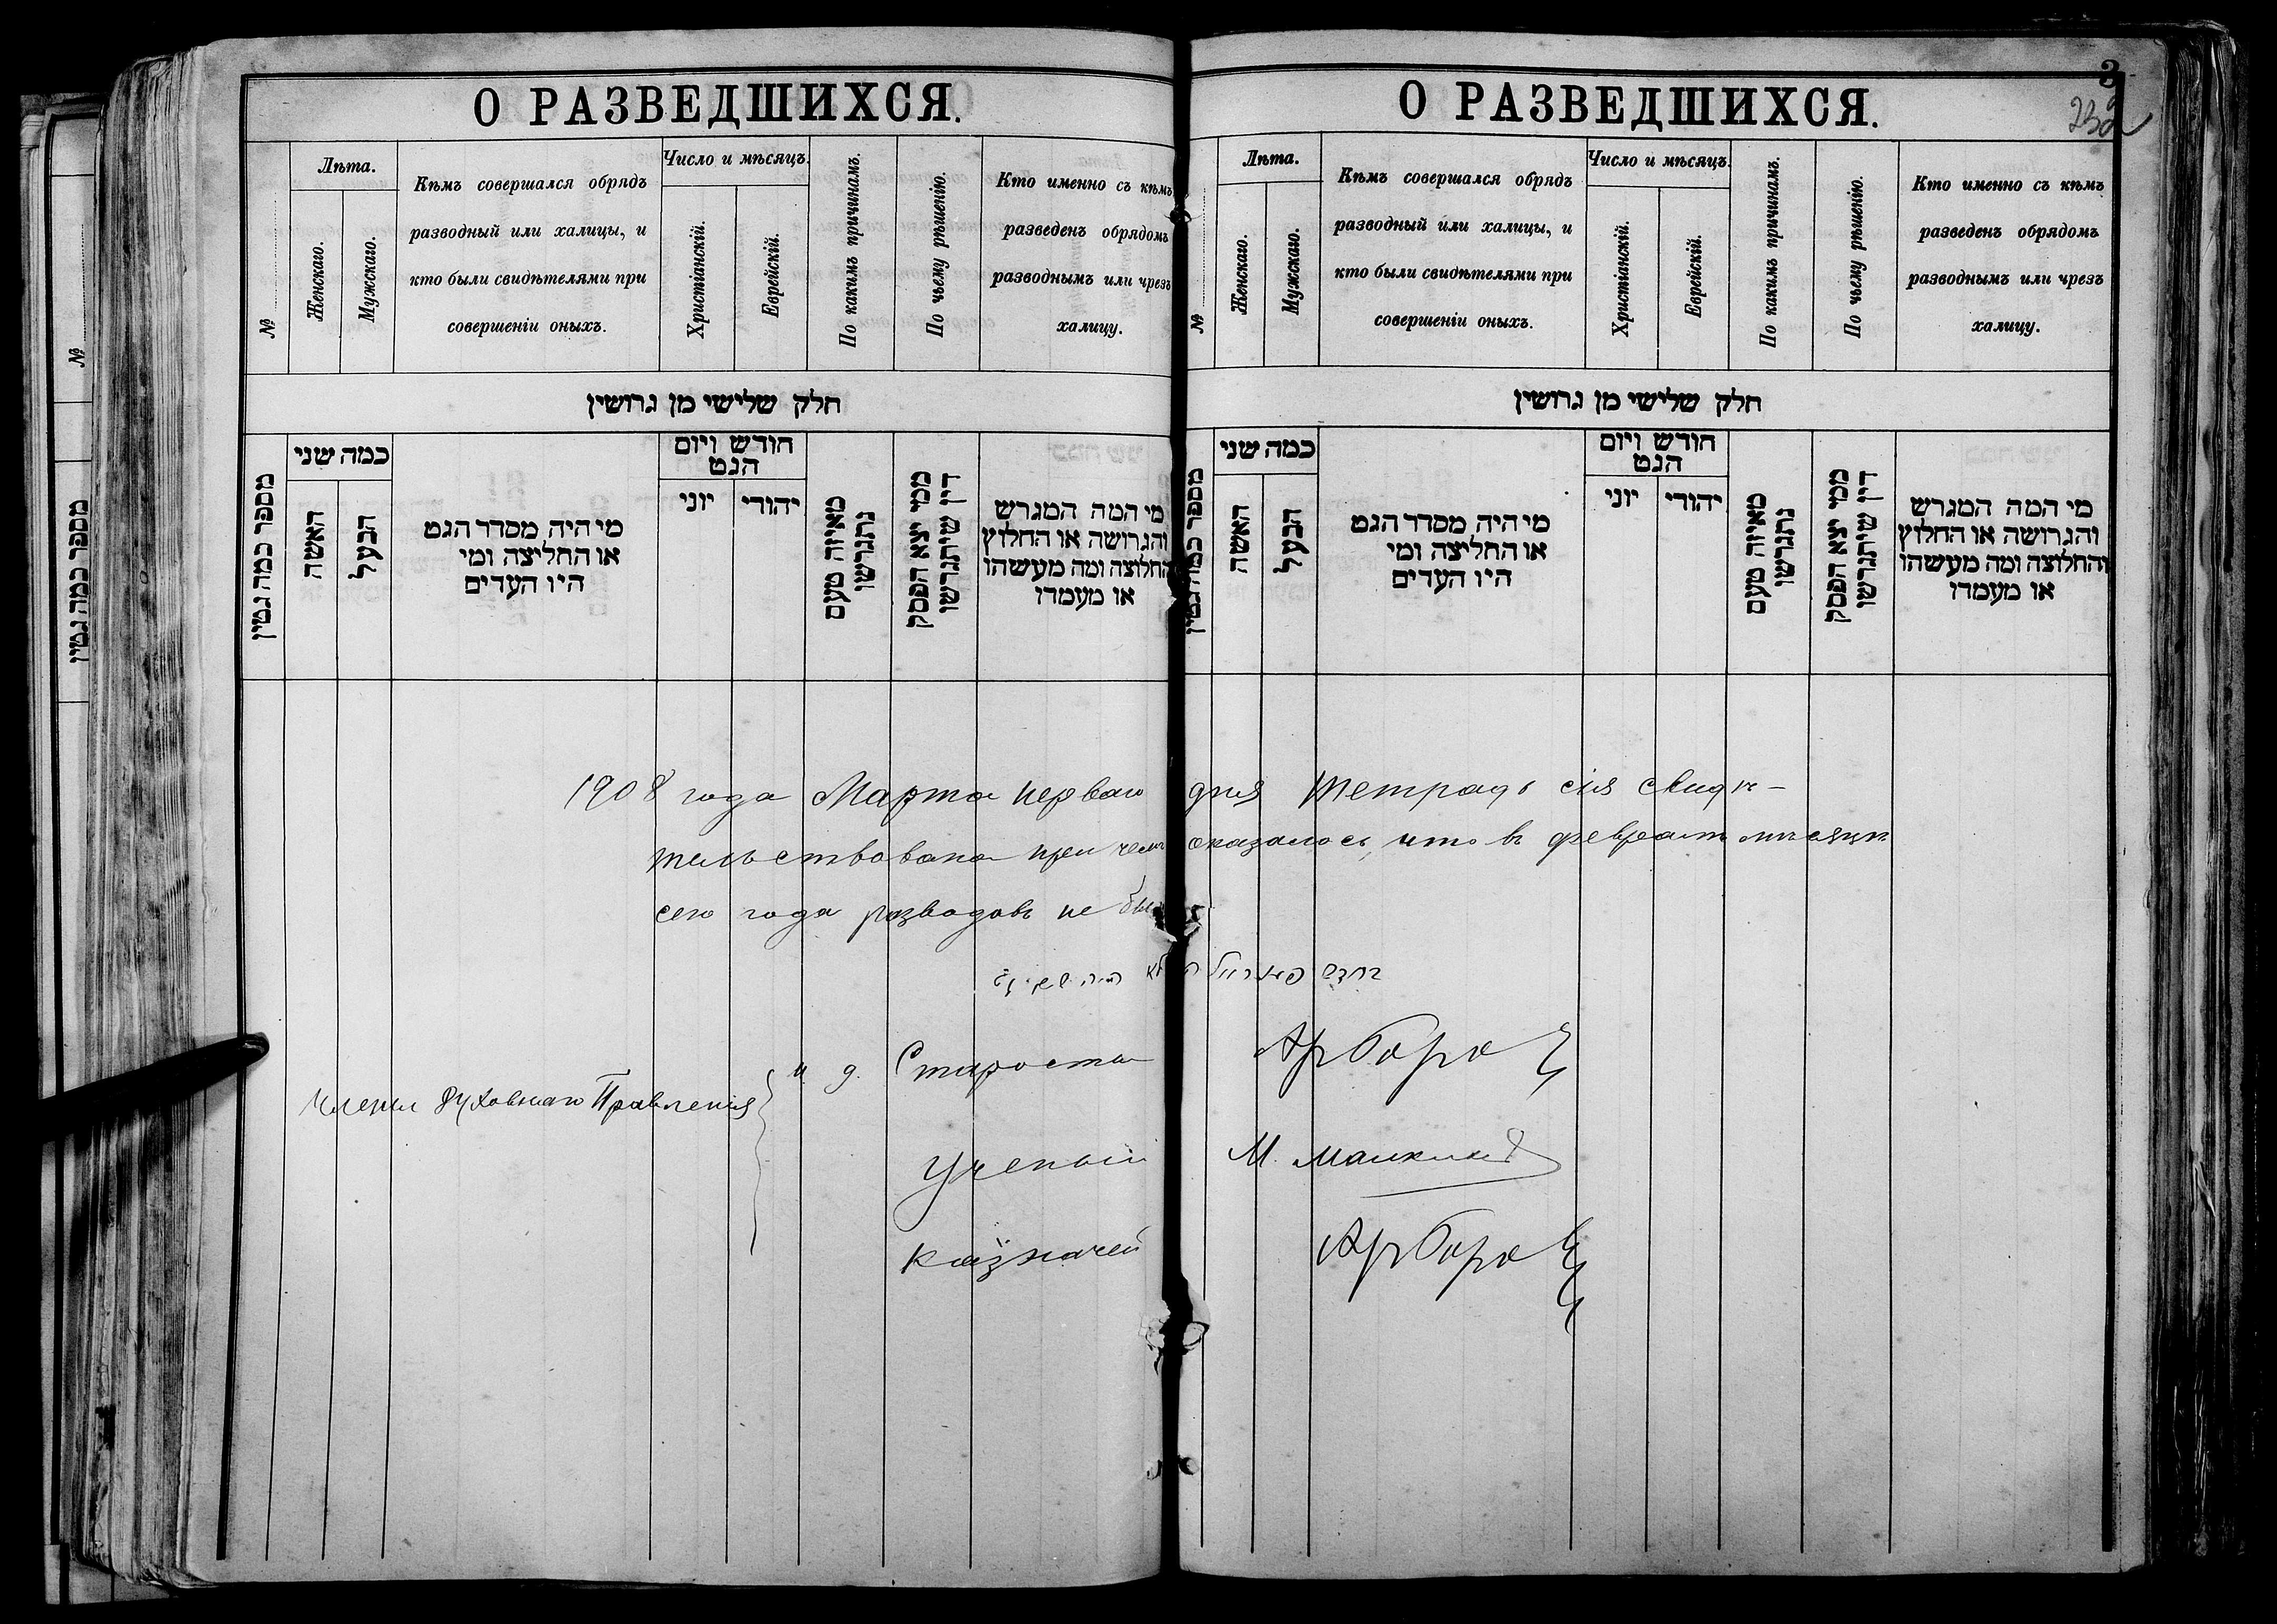 О РАЗВЕДШИХСЯ.
№
Лѣта.
Женскаго.
Мужскаго.
Кѣмъ совершался обрядъ
разводный или халицы, и
кто были свидѣтелями при
совершеніи оныхъ.
Число и мѣсяцъ.
Христіанскій.
Еврейскій.
По какимъ причинамъ.
По чьему рѣшенію.
Кто именно съ кѣмъ
разведенъ обрядомъ
разводнымъ или чрезъ
халицу.
חלק שלישי מן גרושין
מספר כמה גטין
כמה שני
האשה
הבעל
מי היה מסדר הגט
או החליצה ומי
היו העדים
חודש ויום
הגט
יוני
יהודי
מאיזה טעם
נתגרשו
ממי יצא הפסק
דין שיתגרשו
מי המה המגרש
והגרושה או החלוץ
והחלוצה ומה מעשהו
או מעמדו
О РАЗВЕДШИХСЯ.
3
232
№
Лѣта.
Женскаго.
Мужскаго.
Кѣмъ совершался обрядъ
разводный или халицы, и
кто были свидѣтелями при
совершеніи оныхъ.
Число и мѣсяцъ.
Христіанскій.
Еврейскій.
По какимъ причинамъ.
По чьему рѣшенію.
Кто именно съ кѣмъ
разведенъ обрядомъ
разводнымъ или чрезъ
халицу.
חלק שלישי מן גרושין
מספר כמה גטין
כמה שני
האשה
הבעל
מי היה מסדר הגט
או החליצה ומי
היו העדים
חודש ויום
הגט
יוני
יהודי
מאיזה טעם
נתגרשו
ממי יצא הפסק
דין שיתגרשו
מי המה המגרש
והגרושה או החלוץ
והחלוצה ומה מעשהו
או מעמדו
№
מספר כמה גטין
1908 года Марта перваго дня тетрадь сія свидѣ-
тельствована при чемъ оказалось, что въ февралѣ мѣсяцѣ
сего года разводовъ не было
חדש פעברואל לא היה
и. д. Староста Арборо
Члены Духовнаго Правленія
Ученый М.
Казначей Арборо